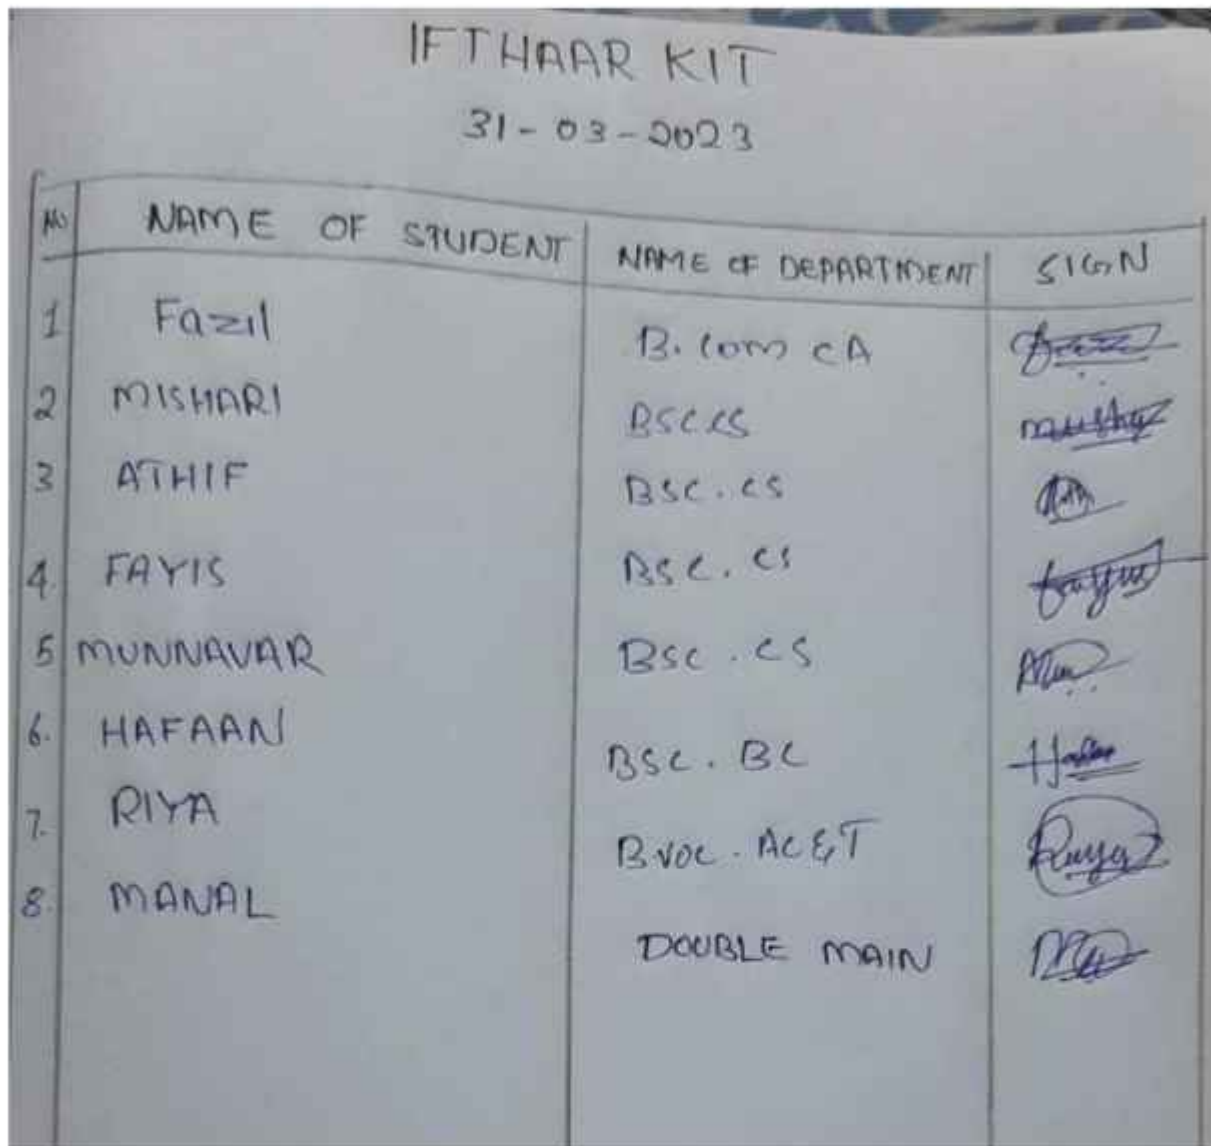 IFTHAAR KIT
31-03-2023
No NAME OF STUDENT NAME OF DEPARTMENT SIGN
1 Fazil B.Com CA
2 MISHARI BSC.CS
3 ATHIF BSC.CS
4. FAYIS BSC.CS
5 MUNNAVAR BSC.CS
6. HAFAAN BSC.BC
7. RIYA B.VOC.AC&T
8. MANAL DOUBLE MAIN